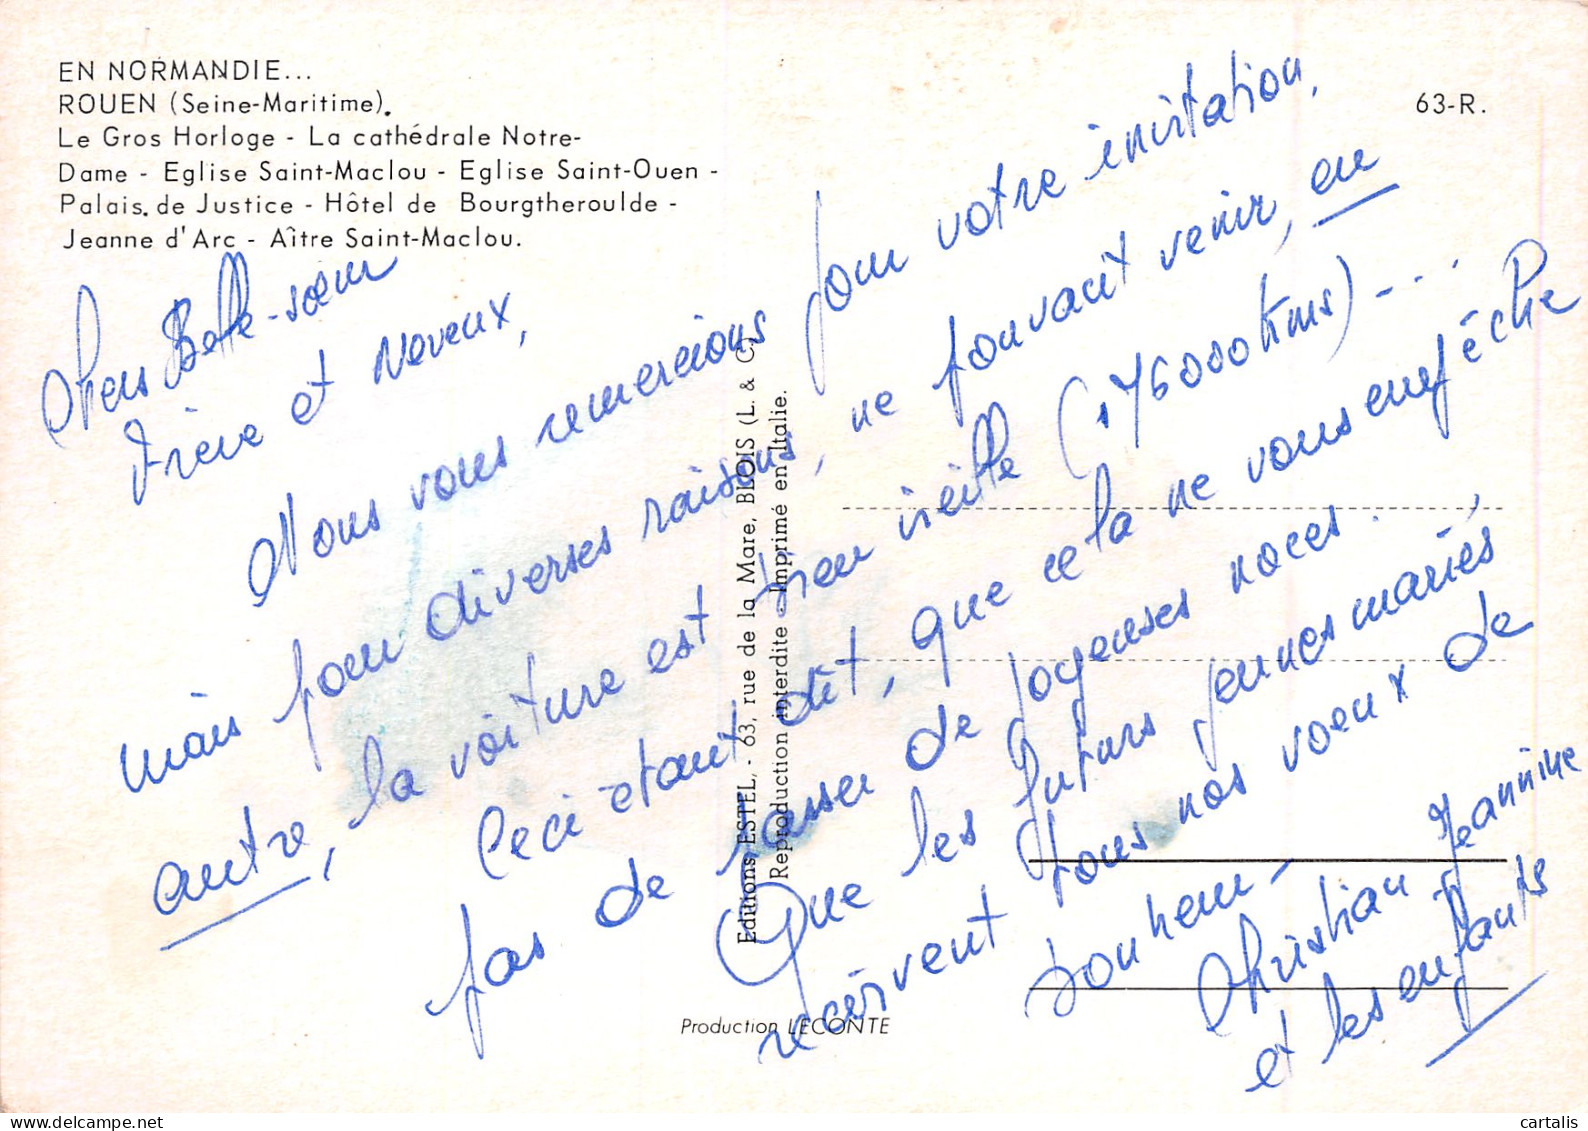 EN NORMANDIE...
ROUEN (Seine-Maritime).
Le Gros Horloge - La cathédrale Notre-
Dame - Eglise Saint-Maclou - Eglise Saint-Ouen -
Palais de Justice - Hôtel de Bourgtheroulde -
Jeanne d'Arc - Aître Saint-Maclou.
63-R.
Chers Belle-soeur
Frère et Neveux,
Nous vous remercions pour votre invitation,
mais pour diverses raisons, ne pouvant venir, en
autre, la voiture est bien vieille (176000 kms)-...
Ceci étant dit, que cela ne vous empêche
pas de passer de joyeuses noces.
Que les futurs jeunes mariés,
reçoivent tous nos voeux de
bonheur-
Christian Jeannine
et les enfants
Editions ESTEL, - 63, rue de la Mare, BLOIS (L. & C.)
Reproduction interdite - Imprimé en Italie.
Production LECONTE
cartalis